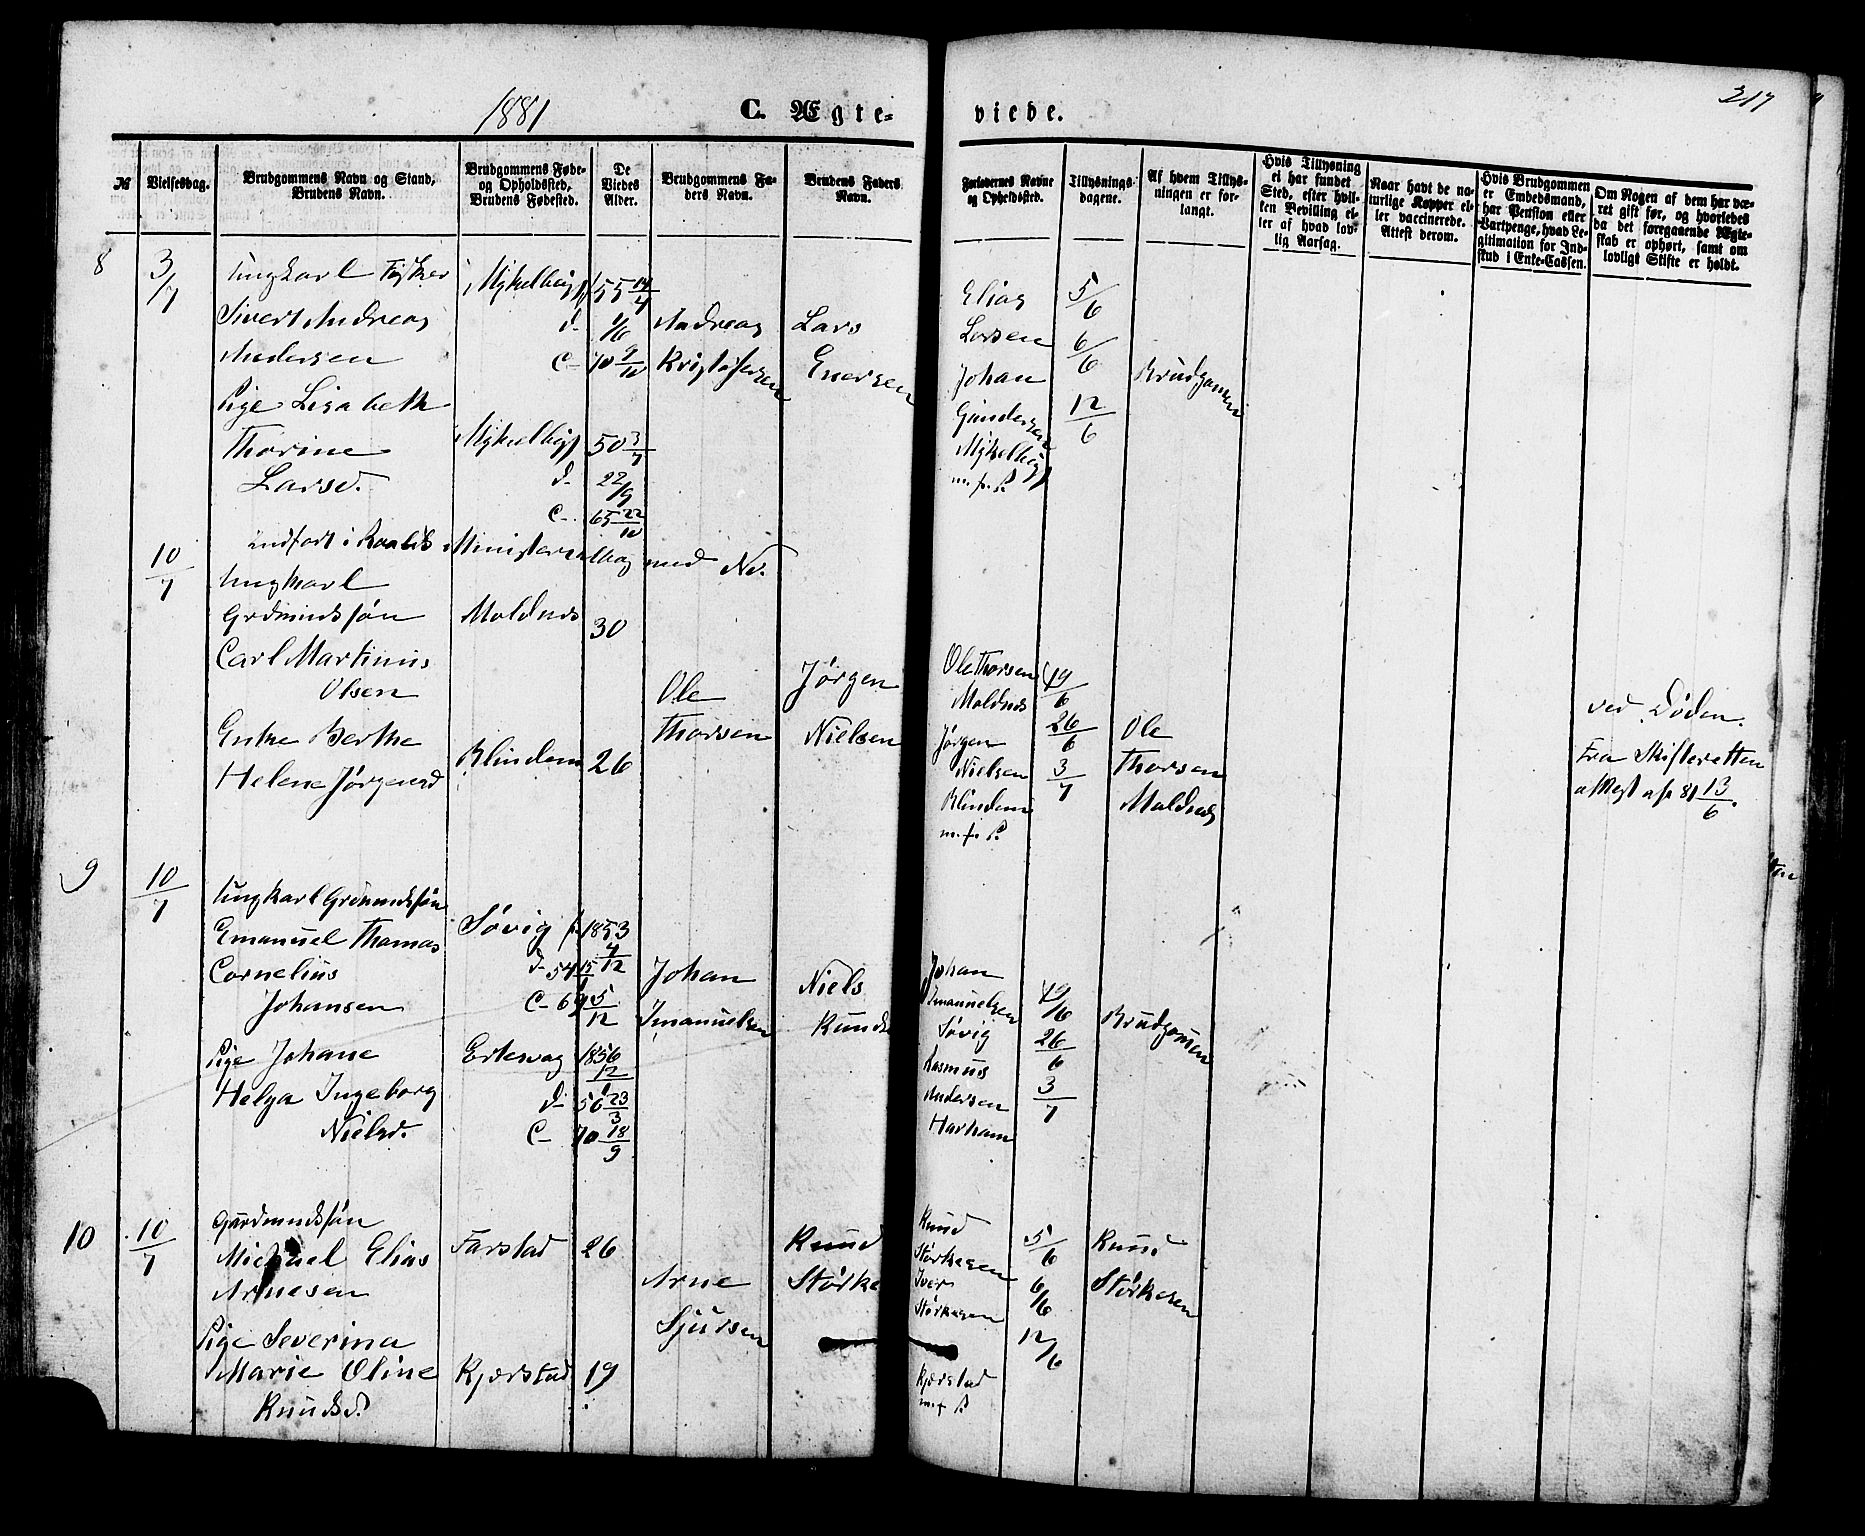 1881
C. Ægte-
viede.
217
№
Vielsesdag.
Brudgommens Navn og Stand,
Brudens Navn.
Brudgommens Føde-
og Opholdssted,
Brudens Fødested.
De
Viedes
Alder.
Brudgommens Fa-
ders Navn.
Brudens Faders
Navn.
Forlovernes Navne
og Opholdssted.
Tillysnings-
dagene.
Af hvem Tillys-
ningen er for-
langt.
Hvis Tillysning
ei har fundet
Sted, efter hvil-
ken Bevilling el-
ler af hvad lov-
lig Aarsag.
Naar havt de na-
turlige Kopper el-
ler vaccinerede.
Attest derom.
Hvis Brudgommen
er Embedsmand,
har Pension eller
Vartpenge, hvad Le-
gitimation for Ind-
skud i Enke-Cassen.
Om Nogen af dem har væ-
ret gift før, og hvorledes
da det foregaaende Ægte-
skab er ophørt, samt om
lovligt Skifte er holdt.
8
3/7
Ungkarl Fisker
Sivert Andreas
Andersen
Pige Lisabeth
Thorine
Larsd.
d-
1/6
C-
Mykelbyst
50 3/7
d-
22/9
C-
65 22/10
Andreas
Kristofersen
Lars
Enersen
Elias
Larsen
Johan
Gundersen
m. f. P.
5/6
6/6
12/6
Brudgomen
indført i Ministerialbog med No.
10/7
Ungkarl
Grdmandssøn
Carl Martinus
Olsen
Enke Berthe
Helene Jørgensd
Moldnes
30
Blindem
26
Ole
Thorsen
Jørgen
Nielsen
Ole Thorsen
Moldnes
Jørgen
Nielsen
Blindem
m. f. P.
19/6
26/6
3/7
Ole
Thorsen
Moldnes
ved Døden.
Fra Skifteretten
attest af 81 13/6.
9
10/7
Ungkarl Grdmandssøn
Emanuel Thomas
Cornelius
Johansen
Pige Johane
Helga Ingeborg
Nielsd.
Søvig f. 1853
4/12
d- 54 15/1
C- 69 5/12
1856
12/1
d- 56 23/3
C- 70 18/9
Johan
Imanuelsen
Niels
Knuds
Johan
Imanuelsen
Søvig
Rasmus
Andersen
Harham
19/6
26/6
3/7
Brudgomen
10
10/7
Gaardmandssøn
Michael Elias
Arnesen
Pige Severina
Marie Oline
Knudsd.
Farstad
26
Kjærstad
19
Arne
Sjursen
Knud
Størke
Knud
Størkesen
Iver
Størkesen
Kjærstad
m. f. P.
5/6
6/6
12/6
Knud
Størkesen